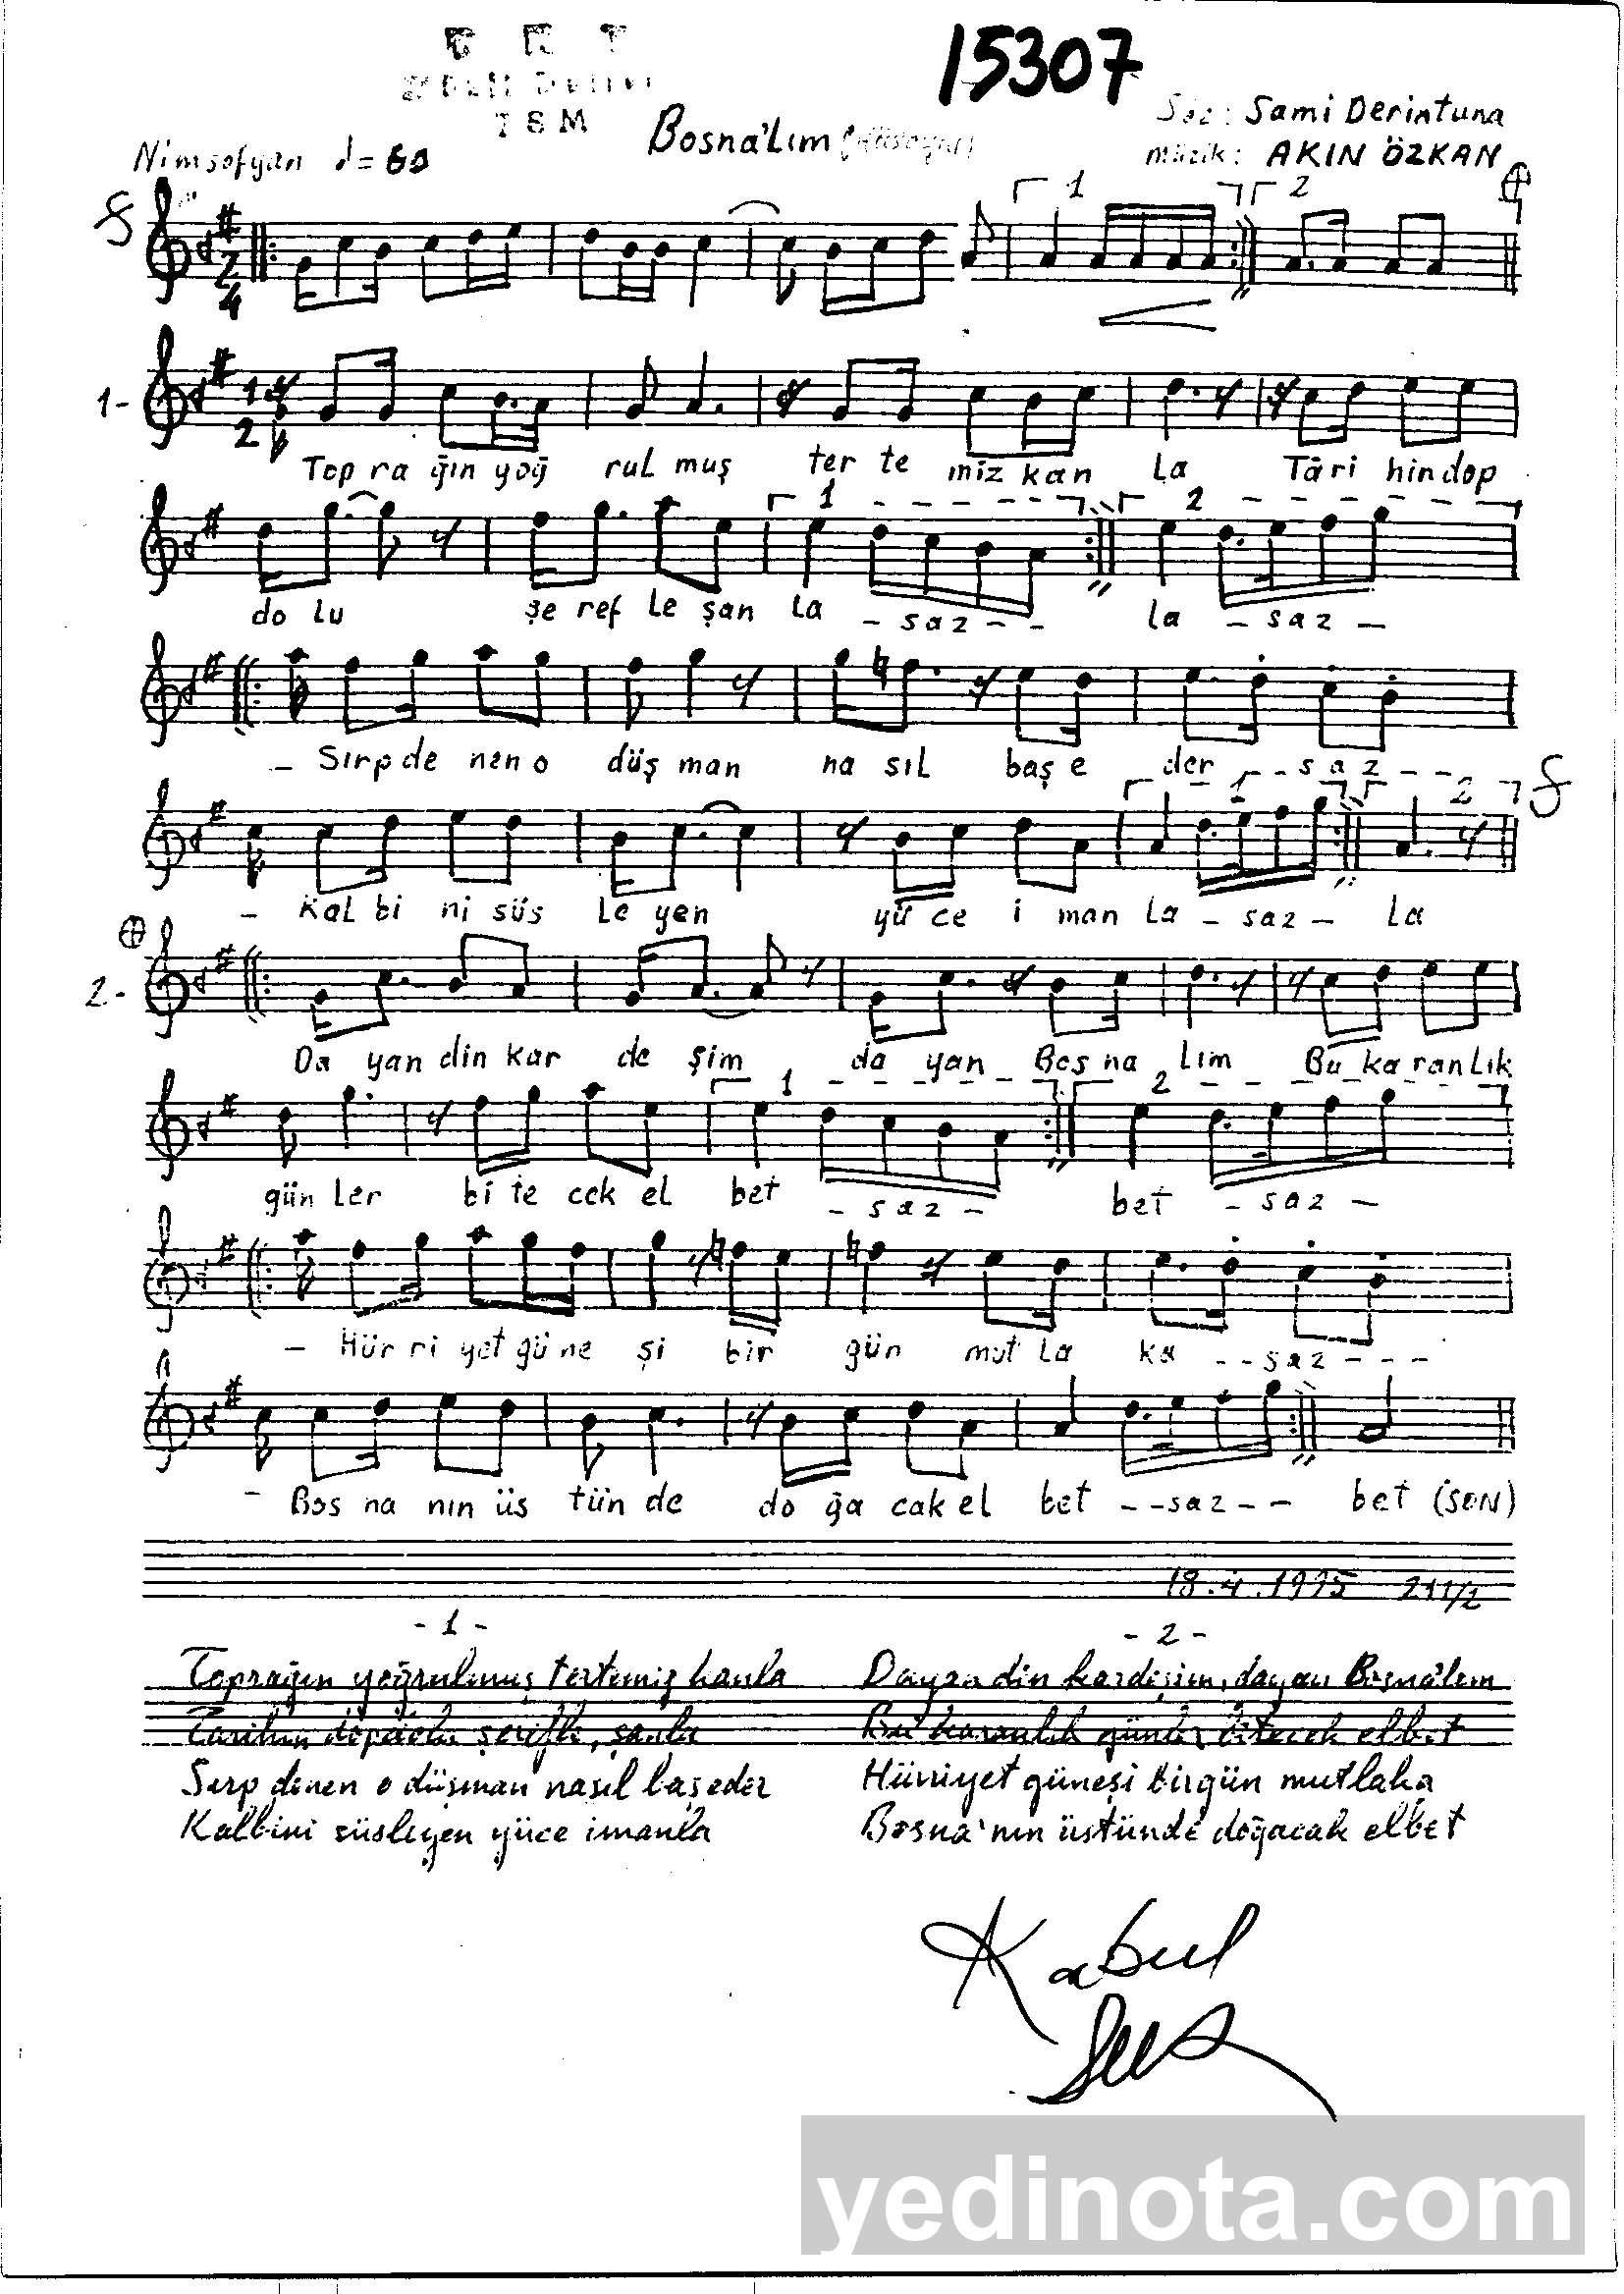 15307
TSM
Bosna'lım
Söz: Sami Derintuna
Nimsofyan ♩= 60
müzik: AKIN ÖZKAN
1 2
2 4
1-
Top ra ğın yoğ rul muş ter te miz kan la Tâ ri hin dop
1 2
do lu şe ref le şan la - saz - - la - saz -
- Sırp de nen o düş man na sıl baş e der - - saz - -
1 2
- Kal bi ni süs le yen yü ce i man la - saz - la
2-
Da yan din kar de şim da yan Bos na lım Bu ka ran lık
1 2
gün ler bi te cek el bet - saz - bet - saz -
- Hür ri yet gü ne şi bir gün mut la ka - - saz - - -
- Bos na nın üs tün de do ğa cak el bet - - saz - - bet (SON)
18.4.1995 21 1/2
- 1 -
Toprağın yoğrulmuş tertemiz kanla
Tarihin dopdolu şerefle, şanla
Sırp denen o düşman nasıl baş eder
Kalbini süsleyen yüce imanla
- 2 -
Dayan din kardeşim, dayan Bosna'lım
Bu karanlık günler bitecek elbet
Hürriyet güneşi birgün mutlaka
Bosna'nın üstünde doğacak elbet
Kabul
yedinota.com